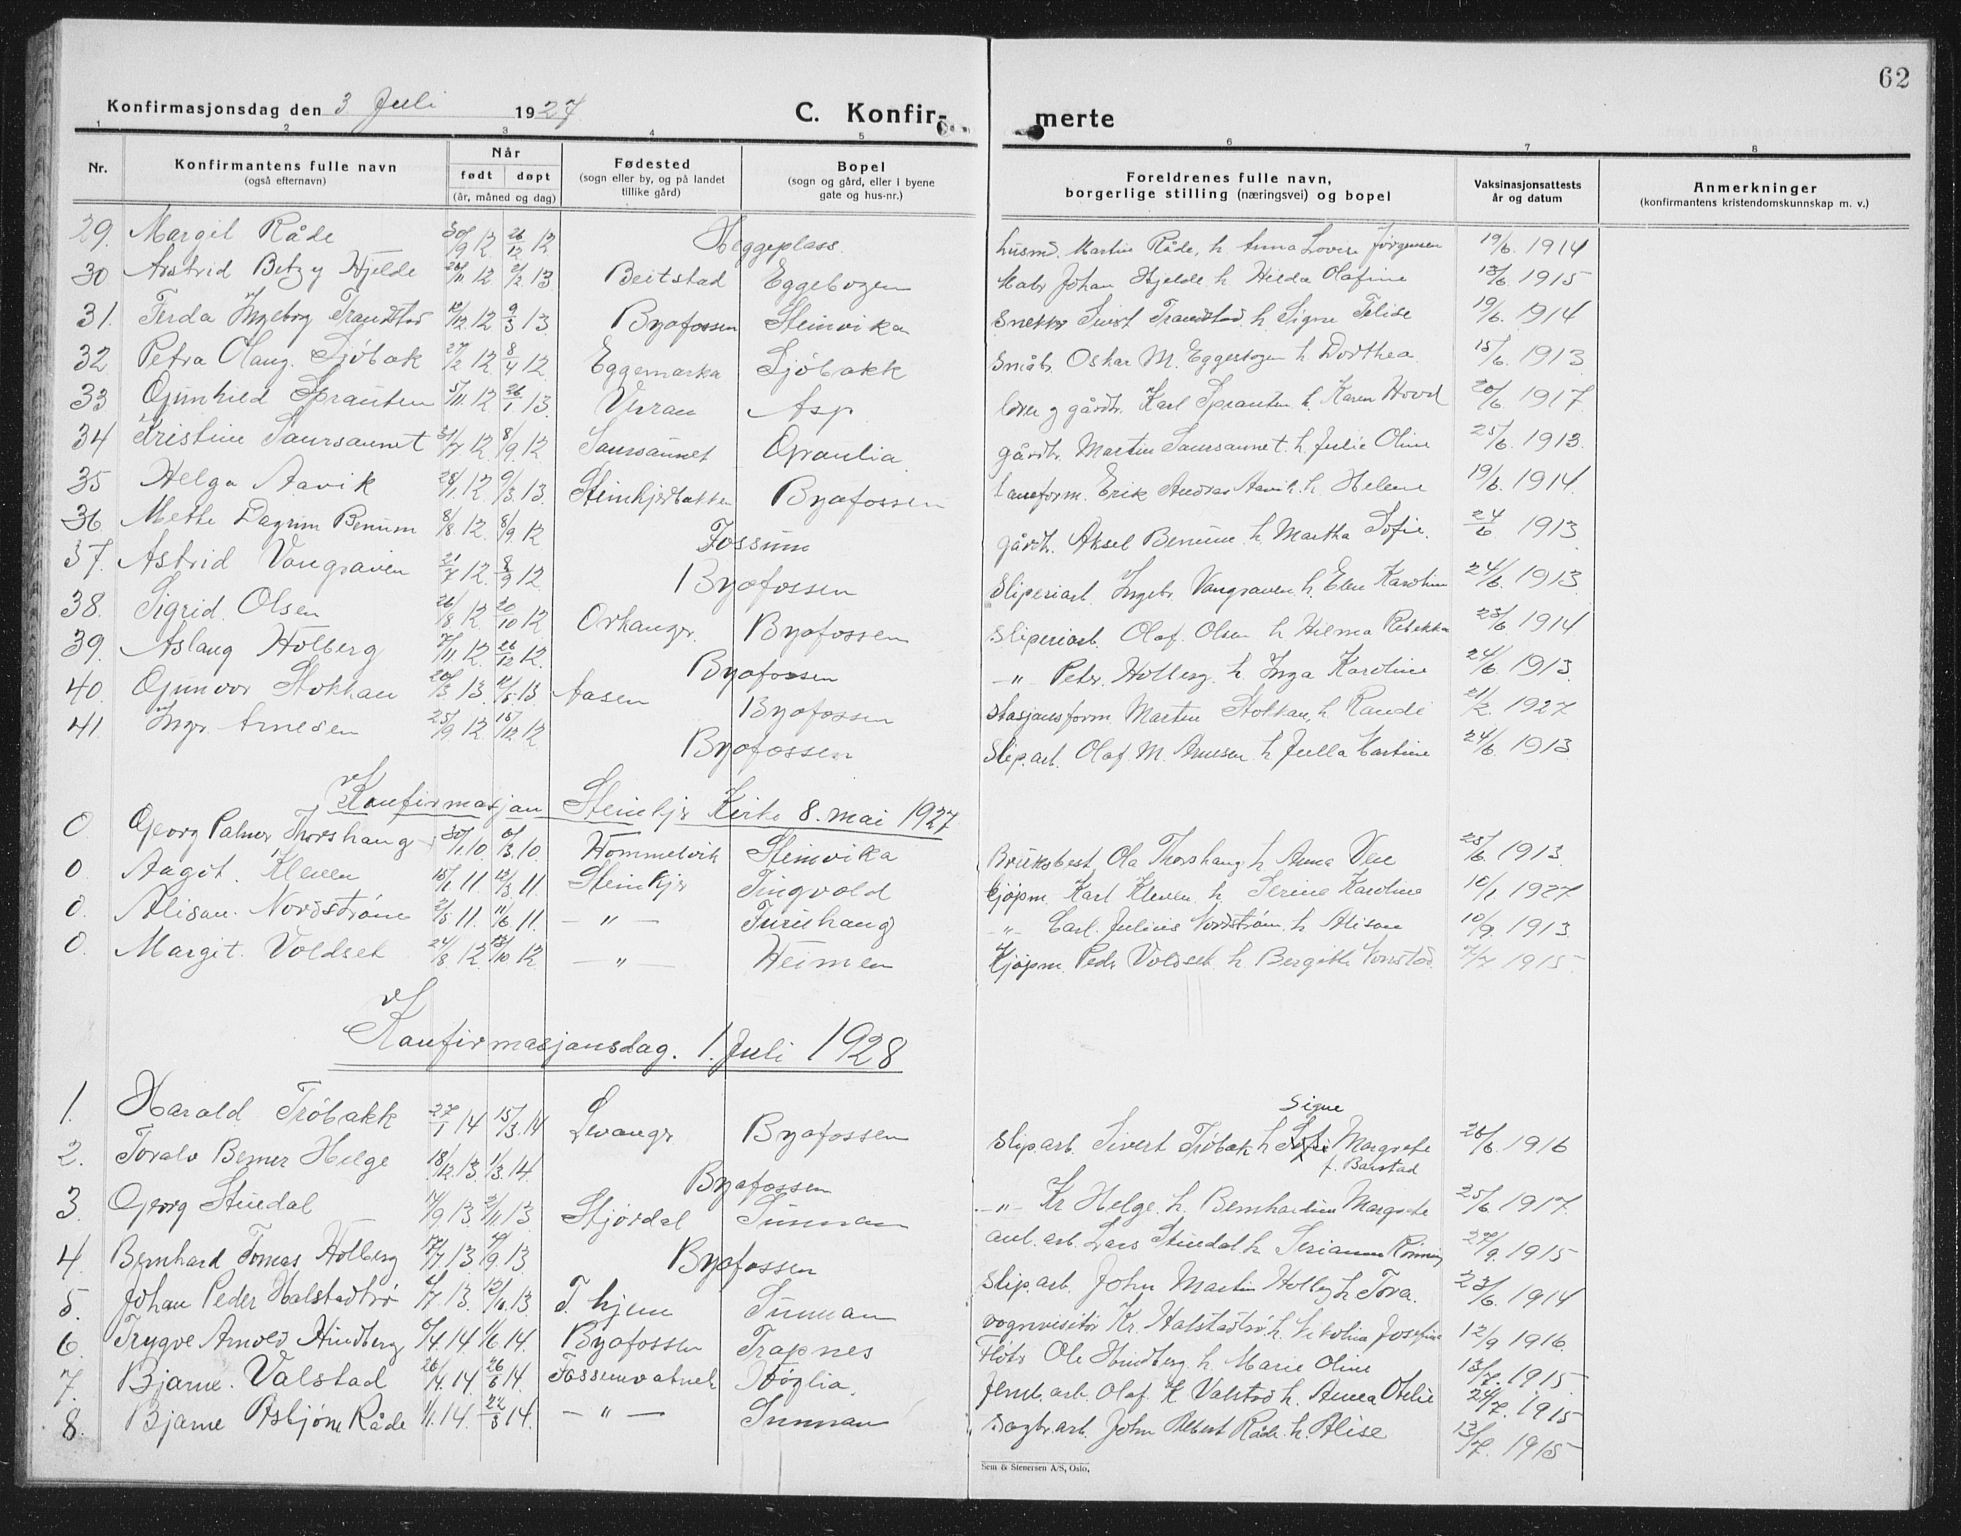 62
Konfirmasjonsdag den 3 Juli 1927 C. Konfir- merte
1 2 3 4 5 6 7 8
Nr. Konfirmantens fulle navn (også efternavn) Når født døpt (år, måned og dag) Fødested (sogn eller by, og på landet tillike gård) Bopel (sogn og gård, eller i byene gate og hus-nr.) Foreldrenes fulle navn, borgerlige stilling (næringsvei) og bopel Vaksinasjonsattests år og datum Anmerkninger (konfirmantens kristendomskunnskap m. v.)
29. Margit Råde 30/9 12 26/12 12 Heggeplass husmd. Martin Råde, h. Anna Jørgensen 19/6. 1914
30 Astrid Betzy Hjelde 12 13. Beitstad Eggebogen Johan Hjelde h Hilda Olafine 18/6. 1915
31. Ferda Ingeborg 12 9/3 13 Byafossen Steinvika Snekker Sivert h. Signe 19/6. 1914
32 Petra Olaug 27/2 12 8/4 12 Eggemarka Sjöbakk Småbr. Oskar M. Eggebogen h Dorthea 15/6 1913
33 Gunhild Sprauten 5/11 12 26/1 13. Verran Asp og gårdbr. Karl Sprauten h. Karen Hovd 20/6 1917
34 Kristine Saursaunet 31/7 12 8/9 12 Saursaunet Graulia gårdbr. Martin Saursaunet. h. Julie Oline 25/6 1913.
35 Helga Aavik 12. 9/3 13. Steinkjerbakken Byafossen Erik Andreas Aavik h. Helene 19/6. 1914
36 Methe Dagrun Benum 8/8 12 8/9 12 Fossum gårdbr. Aksel Benum h. Martha Sofie. 24/6 1913.
37. Astrid Vangraven 21/7 12. 8/9 12 Byafossen Sliperiarb. Ingebr. Vangraven h. Elen Karoline 24/6. 1913.
38. Sigrid Olsen 26/8 12 20/10 12 Orkanger. Byafossen Sliperiarb. Olaf. Olsen h Hilma Rebekka 23/6 1914
39. Aslaug Holberg 7/11 12. 26/12 12. Byafossen —"— Peter. Holberg. h. Inga Karoline 24/6. 1913.
40. Gunvor Stokkan 20/3 13. 13 Aasen Byafossen Stasjonsform. Martin Stokkan, h. Randi 21/2. 1927
41. Ingr. Arnesen 25/9 12. 15/12 12 Byafossen Slip.arb. Olaf M. Arnesen h Julla Martine 24/6 1913.
Konfirmasjon Steinkjer Kirke 8. mai 1927
0. Georg Palmer Thorshaug 30/1. 10. 6/3. 10. Hommelvik Steinvika Bruksbest. Ola Thorshaug h Anna 25/6. 1913.
0. Aagot. Kleven 15/1 11. 12/3 11 Steinkjer Tingvold Kjøpm. Karl Kleven h Serine Karoline 10/1 1927
0. Alison. Nordstrøm 2/5 11. 11/6 11. —"— Furuhaug —"— Carl. Julius Nordstrøm h Alison 10/9. 1913
0. Margit. Voldset 24/8 12 13/10 12 —"— Heimen Kjøpm. Peder Voldset h. Bergitte 7/7 1915.
Konfirmasjonsdag. 1. Juli 1928
1. Harald Trøbakk 27/1 14 15/3. 14 Levanger Byafossen Slip.arb. Sivert h Signe Margrete f. Barstad 26/6. 1916
2. Toralv Berner Helge 18/12. 13 1/3. 14. Byafossen —"— Kr Helge. h. Bernhardine Margrete 25/6 1917.
3. Georg Stuedal 14/9 13. 2/11 13. Stjørdal Sunnan anl. arb. Lars Stuedal h Serianna Rönning 27/9. 1915
4. Bernhard Tomas Holberg 17/7. 13 7/9. 13 Byafossen Slip.arb. John Martin h Tora. 23/6. 1914
5. Johan Peder Halstadtrø 4/7. 13. 13 Sunnan vognvisitør Kr. Halstadtrø h. Nikolina Josefine 12/9 1916.
6. Trygve Arnold Hindberg 14. 1/6 14. Byafossen Trapnes Fløter Ole Hindberg. h. Marie Oline 13/7. 1915
7. Bjarne. Valstad 26/4. 14. 26/6 14. Fossemvatnet Høglia. Jernb. arb. Olaf K Valstad h. Anna Otelie 24/7. 1915
8. Bjarne Asbjørn Råde 1/1. 14. 22/3 14. —"— Sunnan Sagbr.arb. John Albert Råde. h. Alise 13/7. 1915
Sem & Stenersen A/S, Oslo.